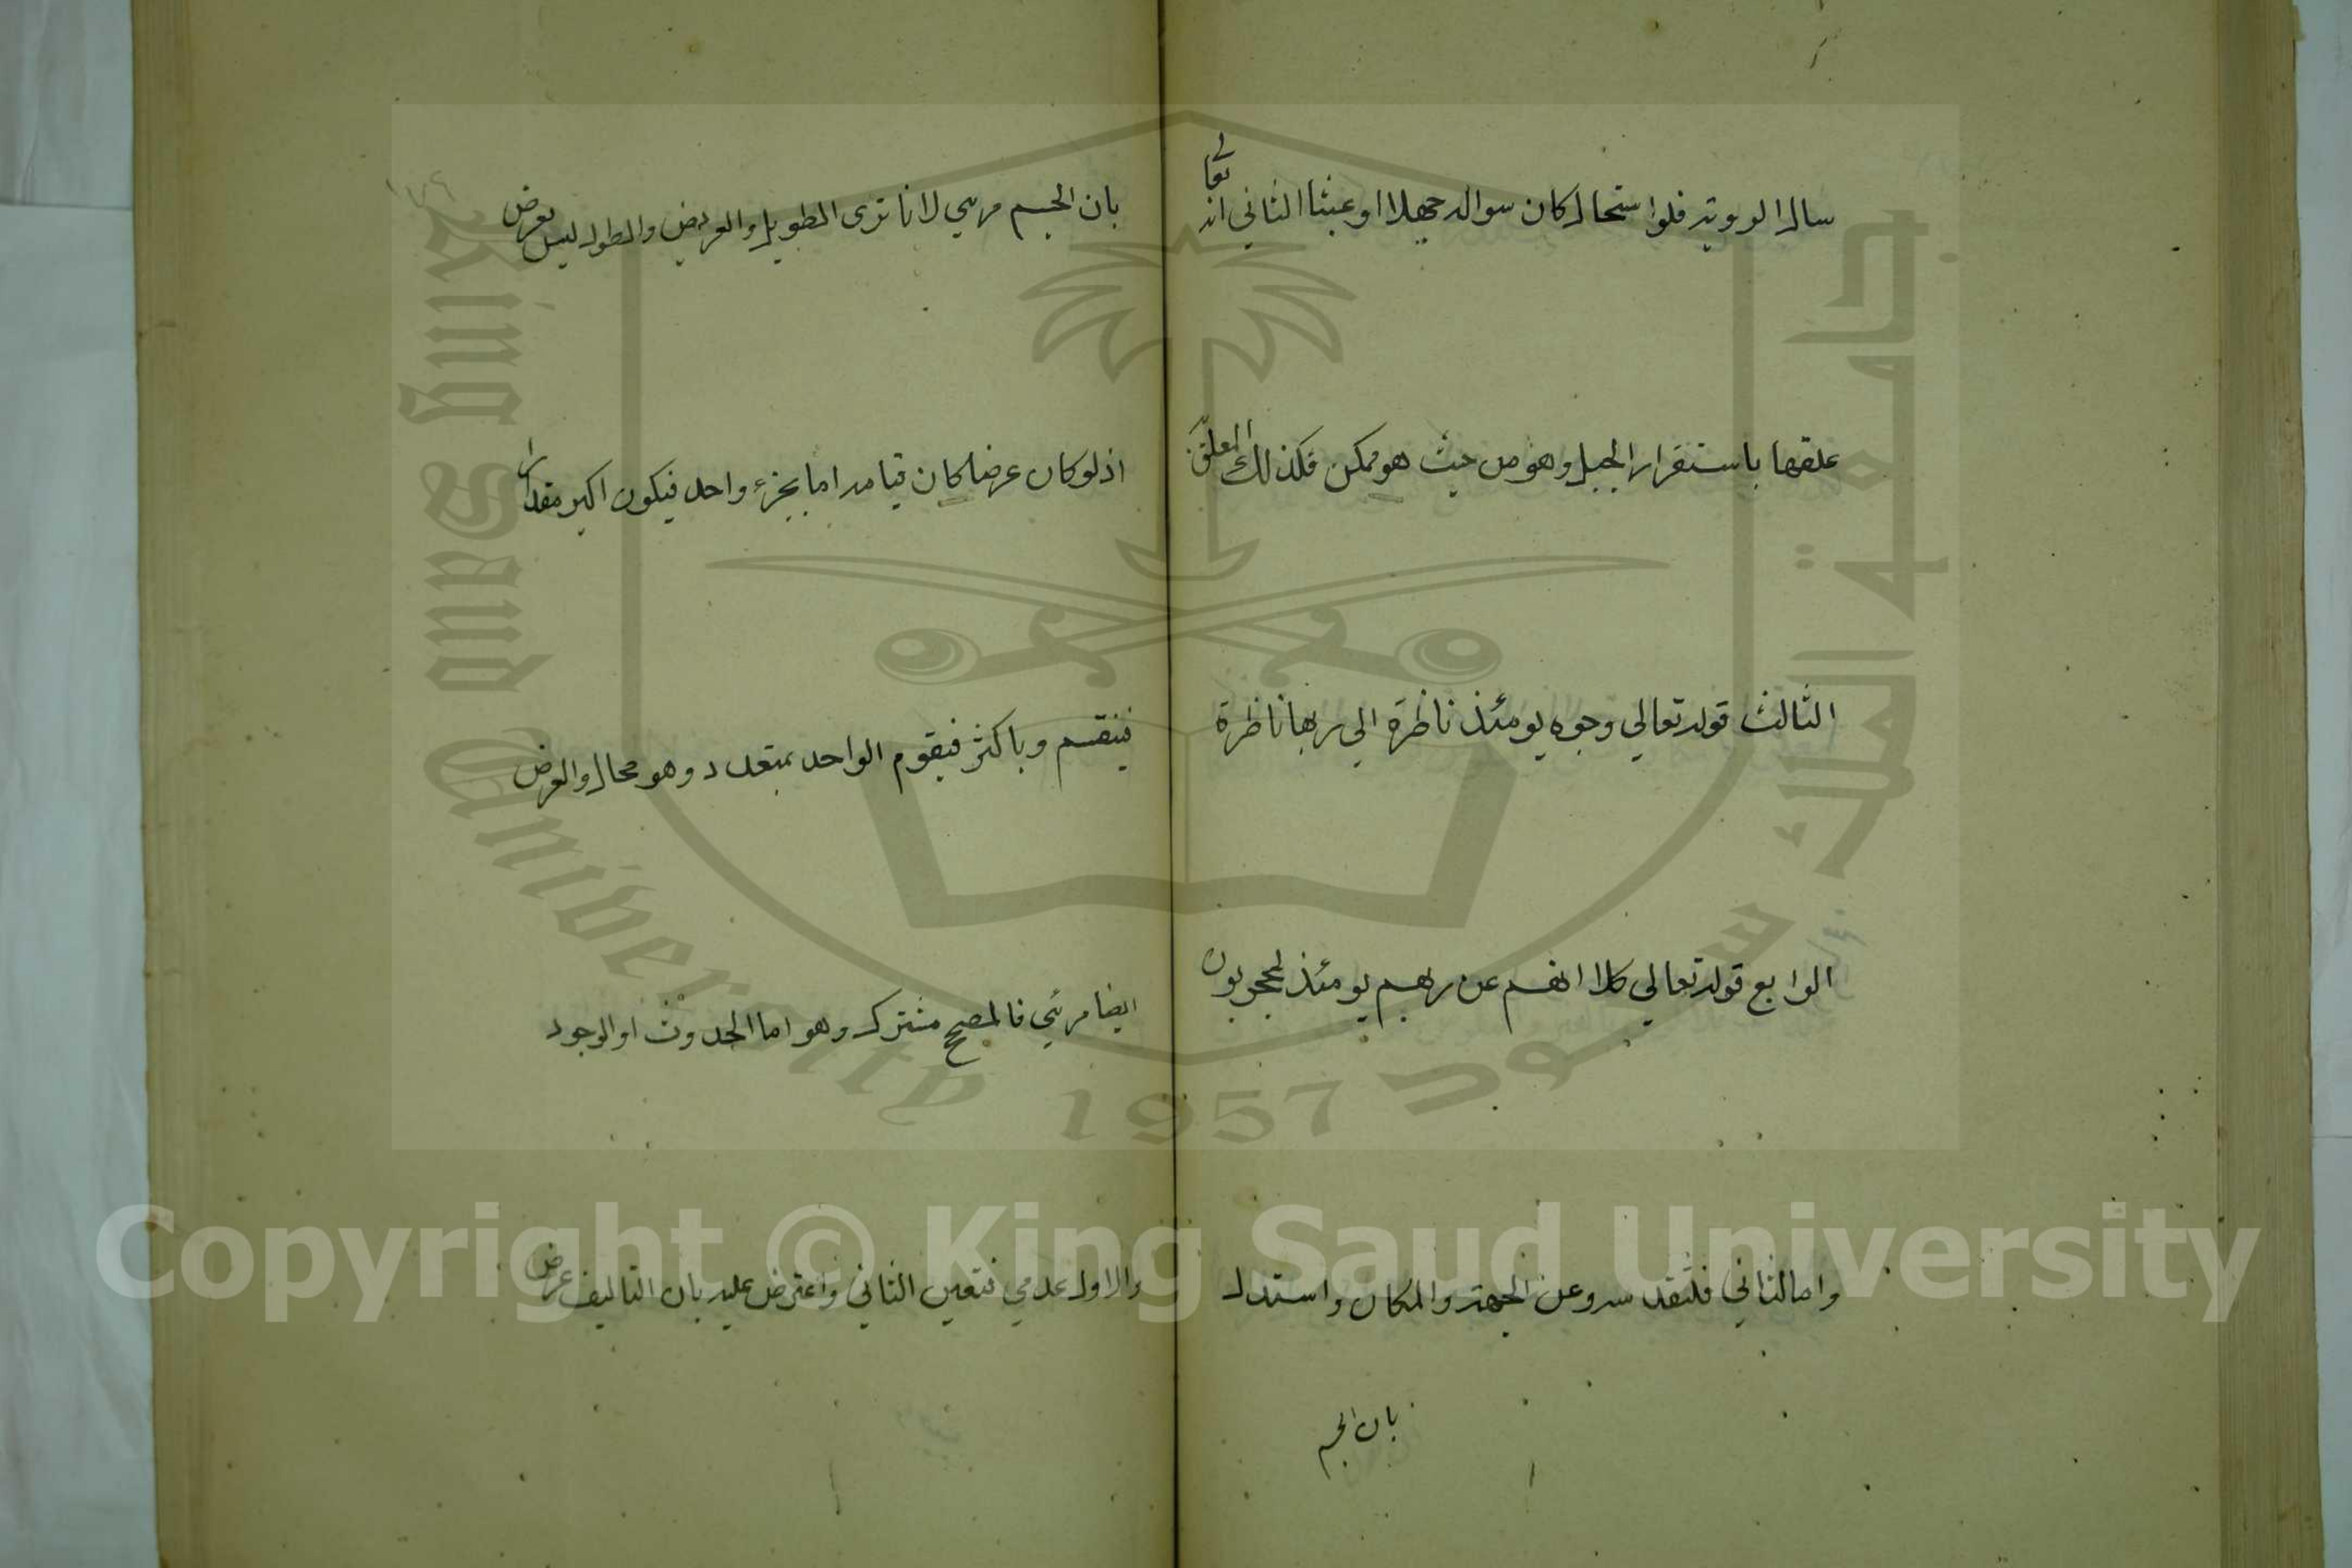 سال الرويته فلوا ستحال كان سواله جهلا او عبثا الثاني انه تعالى
علقها باستقرار الجبل وهو من حيث هو ممكن فكذلك المعلق
الثالث قوله تعالي وجوه يومئذ ناظرة الي ربها ناظرة
الرابع قوله تعالي كلا انهم عن ربهم يومئذ لمحجوبون
واما الثاني فلتقدسه وعن الجهة والمكان واستدل
بان الجسم
بان الجسم مريي لانا نرى الطويل والعريض والطول ليس بعرض
اذ لو كان عرضا لكان قيامه اما بجزء واحد فيكون اكبر مقدارا
فينقسم وباكثر فيقوم الواحد بمتعدد وهو محال والعرض
ايضا مرئي فالمصحح مشترك وهو اما الحدوث او الوجود
والاول عدمي فتعين الثاني واعترض عليه بان التاليف عرض
King Saud University 1957
جامعة الملك سعود
Copyright © King Saud University